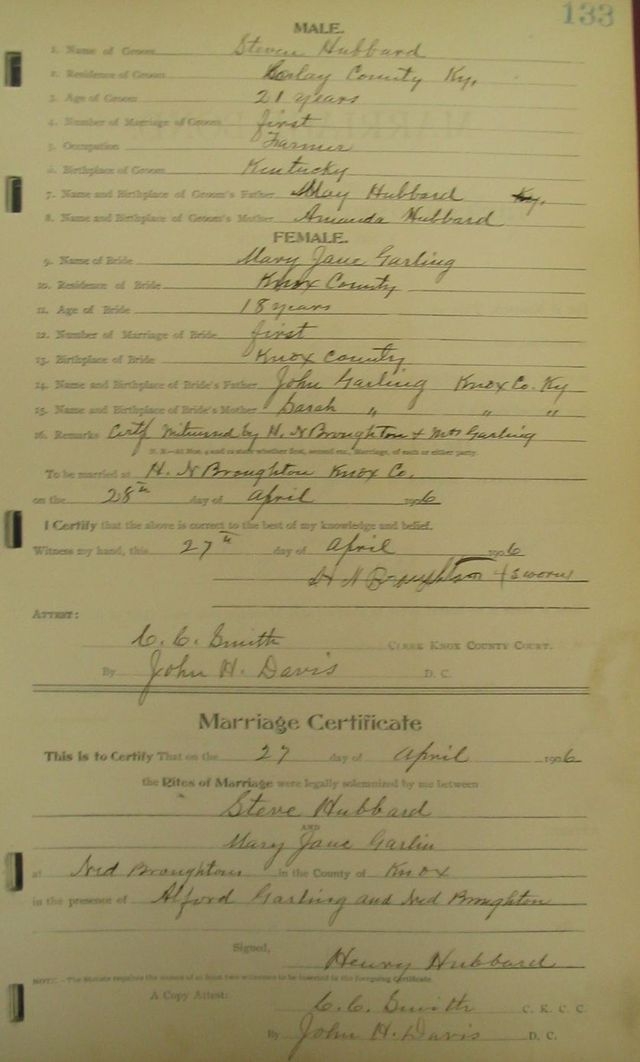 133
MALE.
1. Name of Groom Steven Hubbard
2. Residence of Groom County Ky,
3. Age of Groom 21 years
4. Number of Marriage of Groom first
5. Occupation Farmer
6. Birthplace of Groom Kentucky
7. Name and Birthplace of Groom's Father May Hubbard Ky.
8. Name and Birthplace of Groom's Mother Amanda Hubbard
FEMALE.
9. Name of Bride Mary Jane Garling
10. Residence of Bride Knox County
11. Age of Bride 18 years
12. Number of Marriage of Bride first
13. Birthplace of Bride Knox County
14. Name and Birthplace of Bride's Father John Garling Knox Co. Ky
15. Name and Birthplace of Bride's Mother Sarah " " "
16. Remarks Certf Witnessed by H. N Broughton + Mrs Garling
N. B.—At Nos. 4 and 12 state whether first, second etc., Marriage, of each or either party.
To be married at H. N Broughton Knox Co.
on the 28th day of April 1906
I Certify that the above is correct to the best of my knowledge and belief.
Witness my hand, this 27th day of April 1906
H N Broughton + Sworn
ATTEST:
C. C. Smith CLERK KNOX COUNTY COURT.
By John H. Davis D. C.
Marriage Certificate
This is to Certify That on the 27 day of April 1906
the Rites of Marriage were legally solemnized by me between
Steve Hubbard
AND
Mary Jane Garlin
at Ned Broughtons in the County of Knox
in the presence of Alford Garling and Ned Broughton
Signed, Henry Hubbard
NOTE:—The Statute requires the names of at least two witnesses to be inserted in the foregoing certificate.
A Copy Attest: C. C. Smith C. K. C. C.
By John H. Davis D. C.